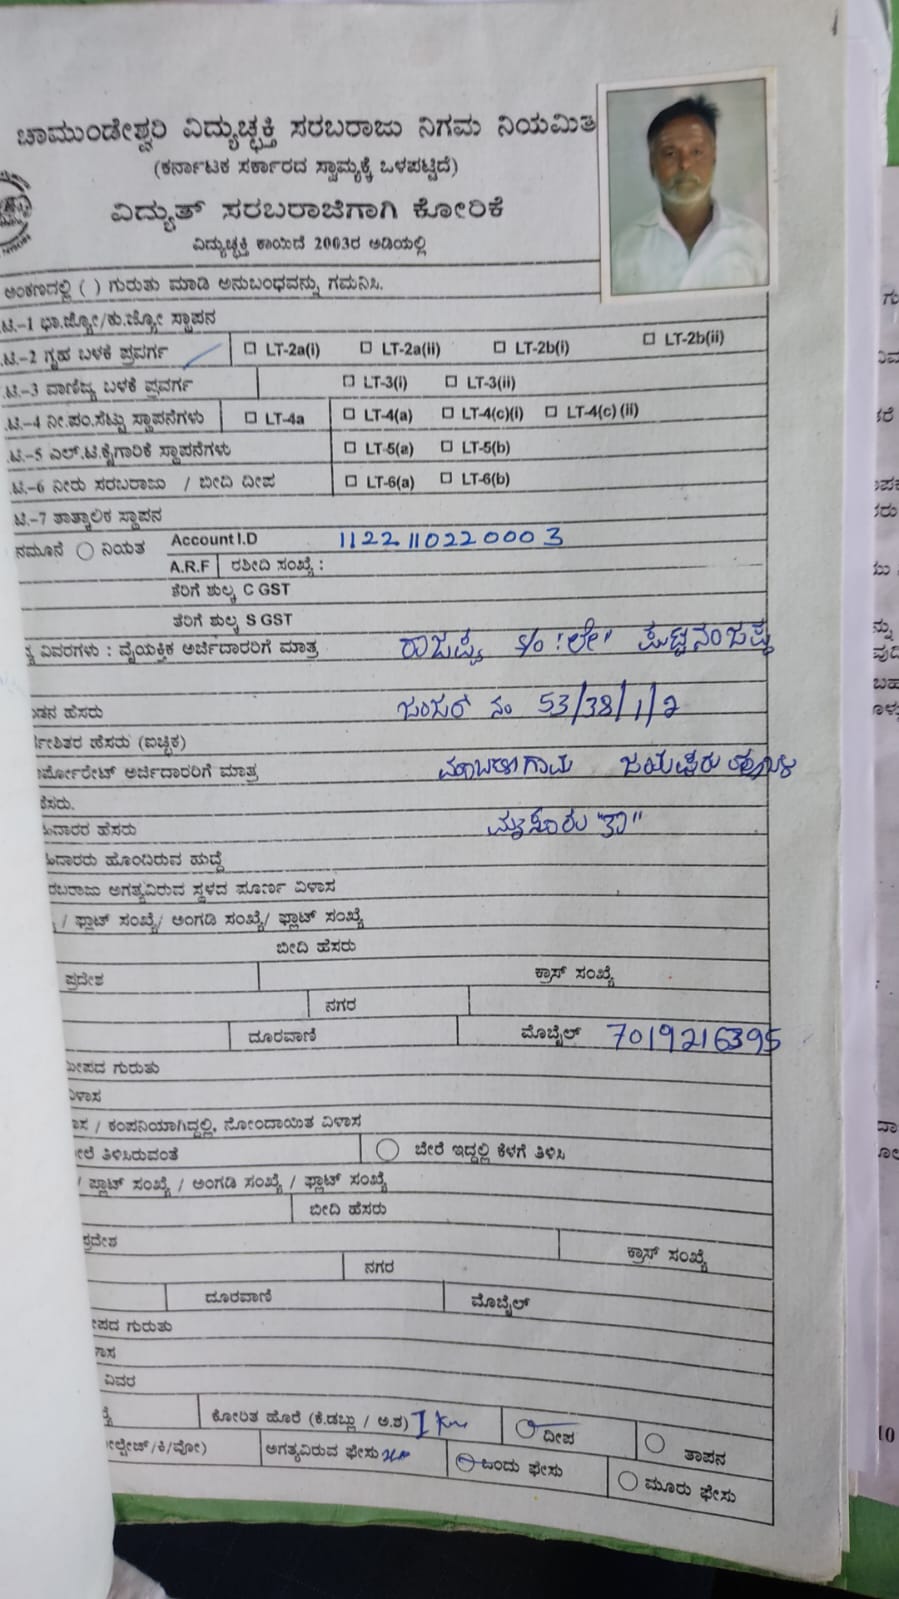 ಚಾಮುಂಡೇಶ್ವರಿ ವಿದ್ಯುಚ್ಛಕ್ತಿ ಸರಬರಾಜು ನಿಗಮ ನಿಯಮಿತ
(ಕರ್ನಾಟಕ ಸರ್ಕಾರದ ಸ್ವಾಮ್ಯಕ್ಕೆ ಒಳಪಟ್ಟಿದೆ)
ವಿದ್ಯುತ್ ಸರಬರಾಜಿಗಾಗಿ ಕೋರಿಕೆ
ವಿದ್ಯುಚ್ಛಕ್ತಿ ಕಾಯಿದೆ 2003ರ ಅಡಿಯಲ್ಲಿ
ಅಂಕಣದಲ್ಲಿ ( ) ಗುರುತು ಮಾಡಿ ಅನುಬಂಧವನ್ನು ಗಮನಿಸಿ.
.ಟಿ.-1 ಭಾ.ಜ್ಯೋ/ಕು.ಜ್ಯೋ ಸ್ಥಾಪನ
.ಟಿ.-2 ಗೃಹ ಬಳಕೆ ಪ್ರವರ್ಗ LT-2a(i) LT-2a(ii) LT-2b(i) LT-2b(ii)
.ಟಿ.-3 ವಾಣಿಜ್ಯ ಬಳಕೆ ಪ್ರವರ್ಗ LT-3(i) LT-3(ii)
.ಟಿ.-4 ನೀ.ಪಂ.ಸೆಟ್ಟು ಸ್ಥಾಪನೆಗಳು LT-4a LT-4(a) LT-4(c)(i) LT-4(c) (ii)
.ಟಿ.-5 ಎಲ್.ಟಿ.ಕೈಗಾರಿಕೆ ಸ್ಥಾಪನೆಗಳು LT-5(a) LT-5(b)
.ಟಿ.-6 ನೀರು ಸರಬರಾಜು / ಬೀದಿ ದೀಪ LT-6(a) LT-6(b)
ಟಿ.-7 ತಾತ್ಕಾಲಿಕ ಸ್ಥಾಪನ
ನಮೂನೆ ನಿಯತ Account I.D 1122110220003
A.R.F ರಶೀದಿ ಸಂಖ್ಯೆ :
ತೆರಿಗೆ ಶುಲ್ಕ C GST
ತೆರಿಗೆ ಶುಲ್ಕ S GST
ವಿವರಗಳು : ವೈಯಕ್ತಿಕ ಅರ್ಜಿದಾರರಿಗೆ ಮಾತ್ರ ರಾಜಪ್ಪ ಪುಟ್ಟನಂಜಪ್ಪ
ಹೆಸರು ಜಂಜರ್ ನಂ 53/38/1/2
ಹೆಸರು (ಐಚ್ಛಿಕ)
ರ್ಪೋರೇಟ್ ಅರ್ಜಿದಾರರಿಗೆ ಮಾತ್ರ ಜಯಪುರ
ಹೆಸರು.
ಹೆಸರು ಮೈಸೂರು "ತಾ"
ಹೊಂದಿರುವ ಹುದ್ದೆ
ರಬರಾಜು ಅಗತ್ಯವಿರುವ ಸ್ಥಳದ ಪೂರ್ಣ ವಿಳಾಸ
/ ಫ್ಲಾಟ್ ಸಂಖ್ಯೆ/ ಅಂಗಡಿ ಸಂಖ್ಯೆ/ ಫ್ಲಾಟ್ ಸಂಖ್ಯೆ
ಬೀದಿ ಹೆಸರು
ಪ್ರದೇಶ ಕ್ರಾಸ್ ಸಂಖ್ಯೆ
ನಗರ
ದೂರವಾಣಿ ಮೊಬೈಲ್ 7019216395
ಮೀಪದ ಗುರುತು
ವಿಳಾಸ
/ ಕಂಪನಿಯಾಗಿದ್ದಲ್ಲಿ, ನೋಂದಾಯಿತ ವಿಳಾಸ
ಲೆ ತಿಳಿಸಿರುವಂತೆ ಬೇರೆ ಇದ್ದಲ್ಲಿ ಕೆಳಗೆ ತಿಳಿಸಿ
/ ಪ್ಲಾಟ್ ಸಂಖ್ಯೆ / ಅಂಗಡಿ ಸಂಖ್ಯೆ / ಫ್ಲಾಟ್ ಸಂಖ್ಯೆ
ಬೀದಿ ಹೆಸರು
ಪ್ರದೇಶ ಕ್ರಾಸ್ ಸಂಖ್ಯೆ
ನಗರ
ದೂರವಾಣಿ ಮೊಬೈಲ್
ೀಪದ ಗುರುತು
ವಿವರ
ಕೋರಿತ ಹೊರೆ (ಕೆ.ಡಬ್ಲು / ಅ.ಶ) ದೀಪ ತಾಪನ
ಅಗತ್ಯವಿರುವ ಫೇಸು ಒಂದು ಫೇಸು ಮೂರು ಫೇಸು